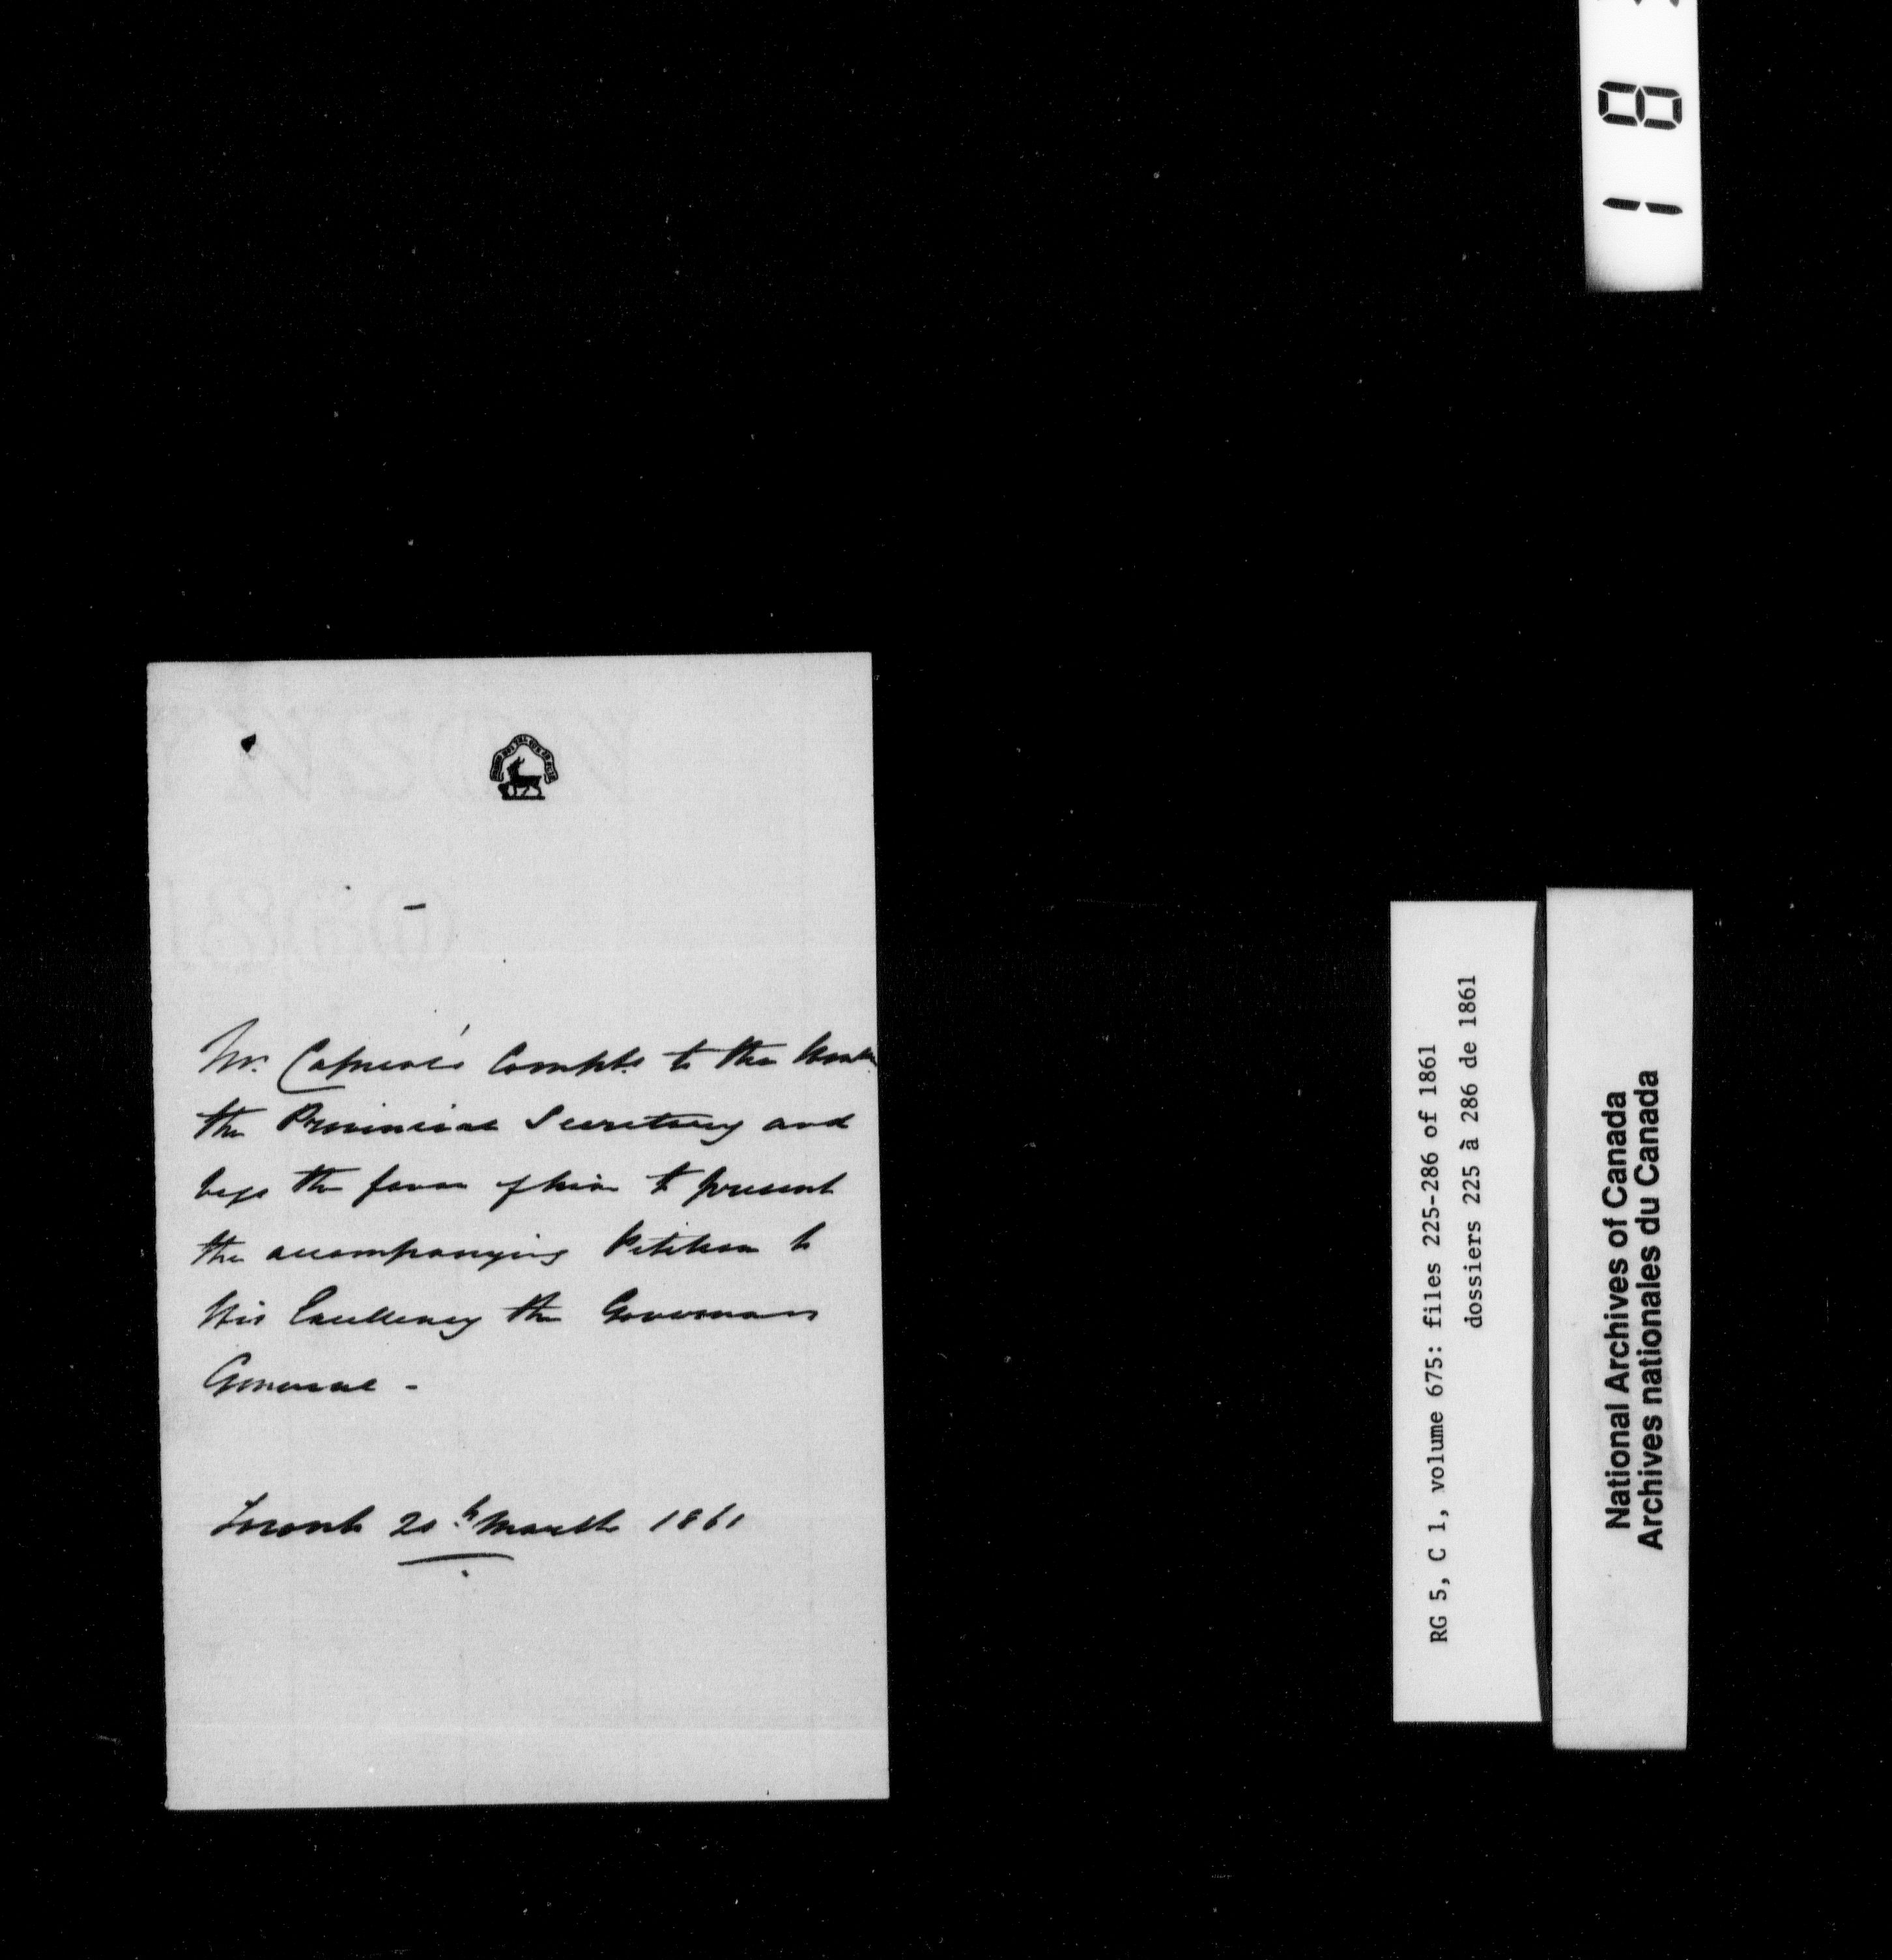 Mr. Capreol's Compts. to the Honble.
the Provincial Secretary and
begs the favor of him to present
the accompanying Petition to
His Excellency the Governor
General -
Toronto 20th March 1861
RG 5, C 1, volume 675: files 225-286 of 1861
dossiers 225 à 286 de 1861
National Archives of Canada
Archives nationales du Canada
18